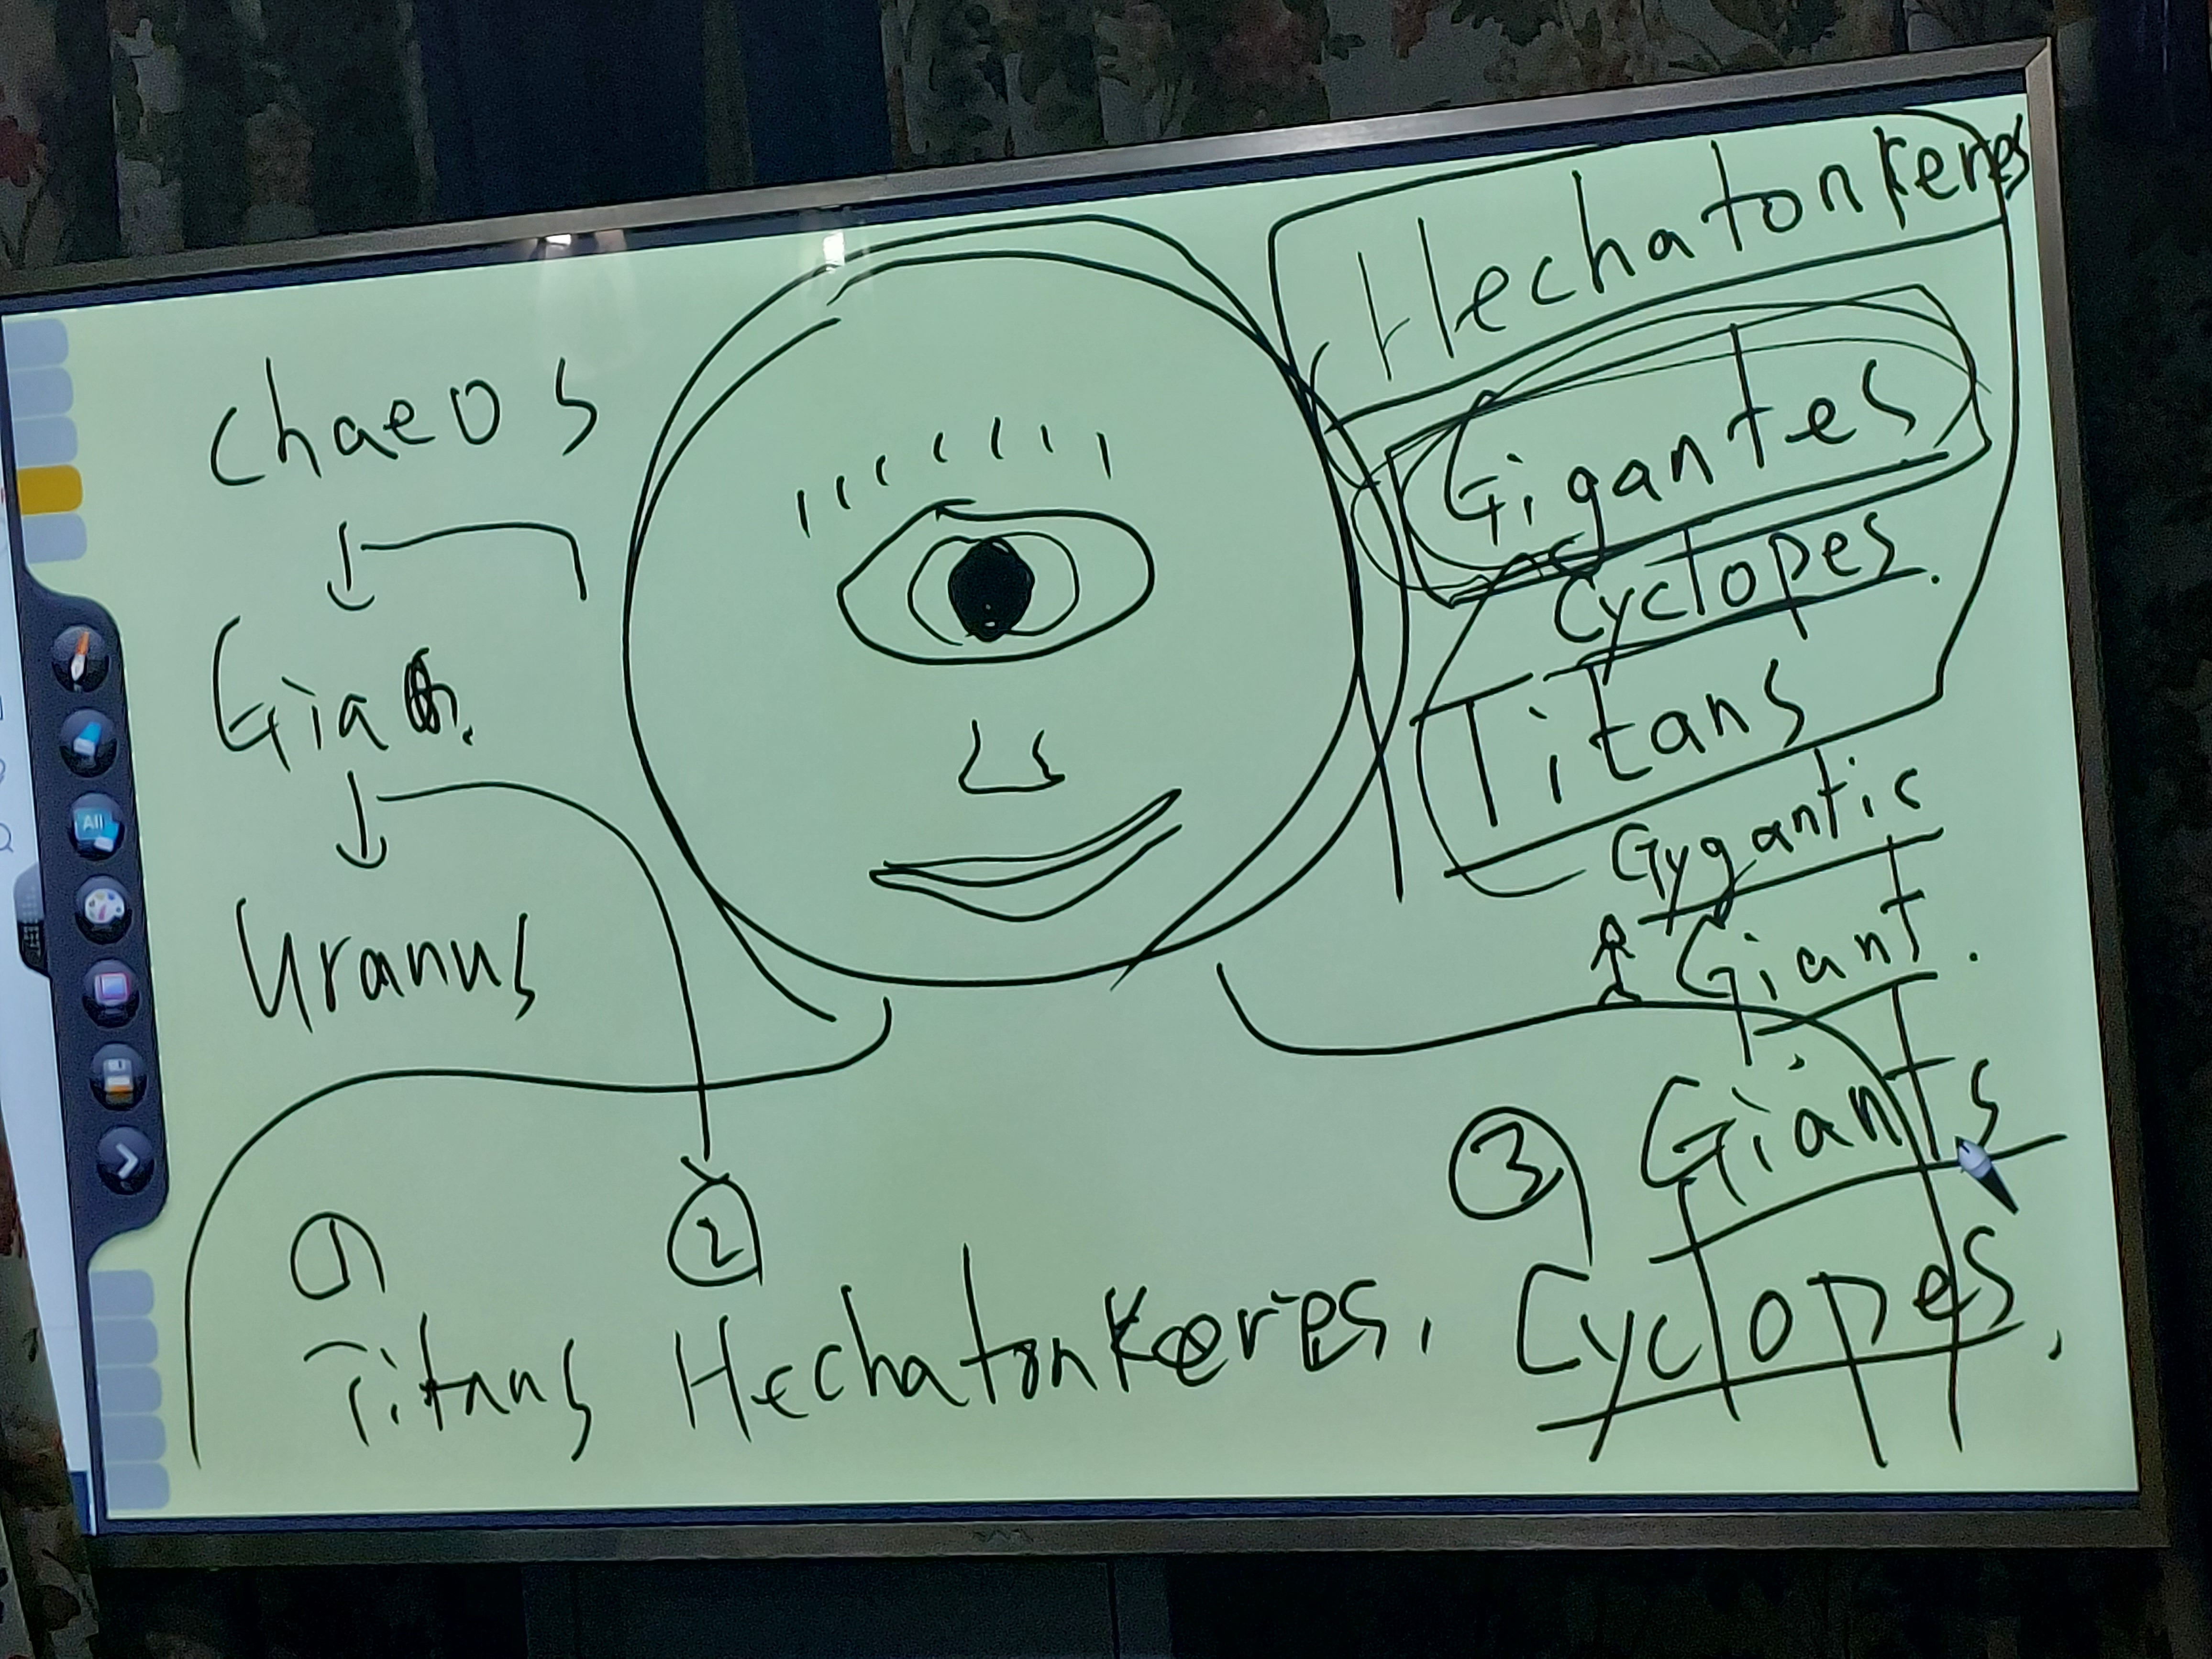 chaeos
Gia
Uranus
Hechatonkeres
Gigantes
Cyclopes.
Titans
Gygantic
Giant.
③ Giants
①
②
Titans Hechatonkeres, Cyclopes.
All